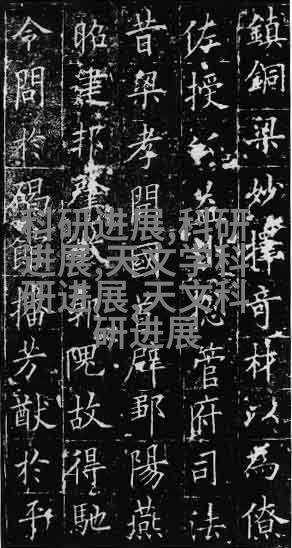 鎮銅梁妙擇奇材以為僚
佐授管府司法
昔梁孝開國首辟鄒陽燕
昭建邦肇郭隗故得馳
令問於碣館播芳猷於平
科研进展,科研
进展,天文学科
研进展,天文科
研进展